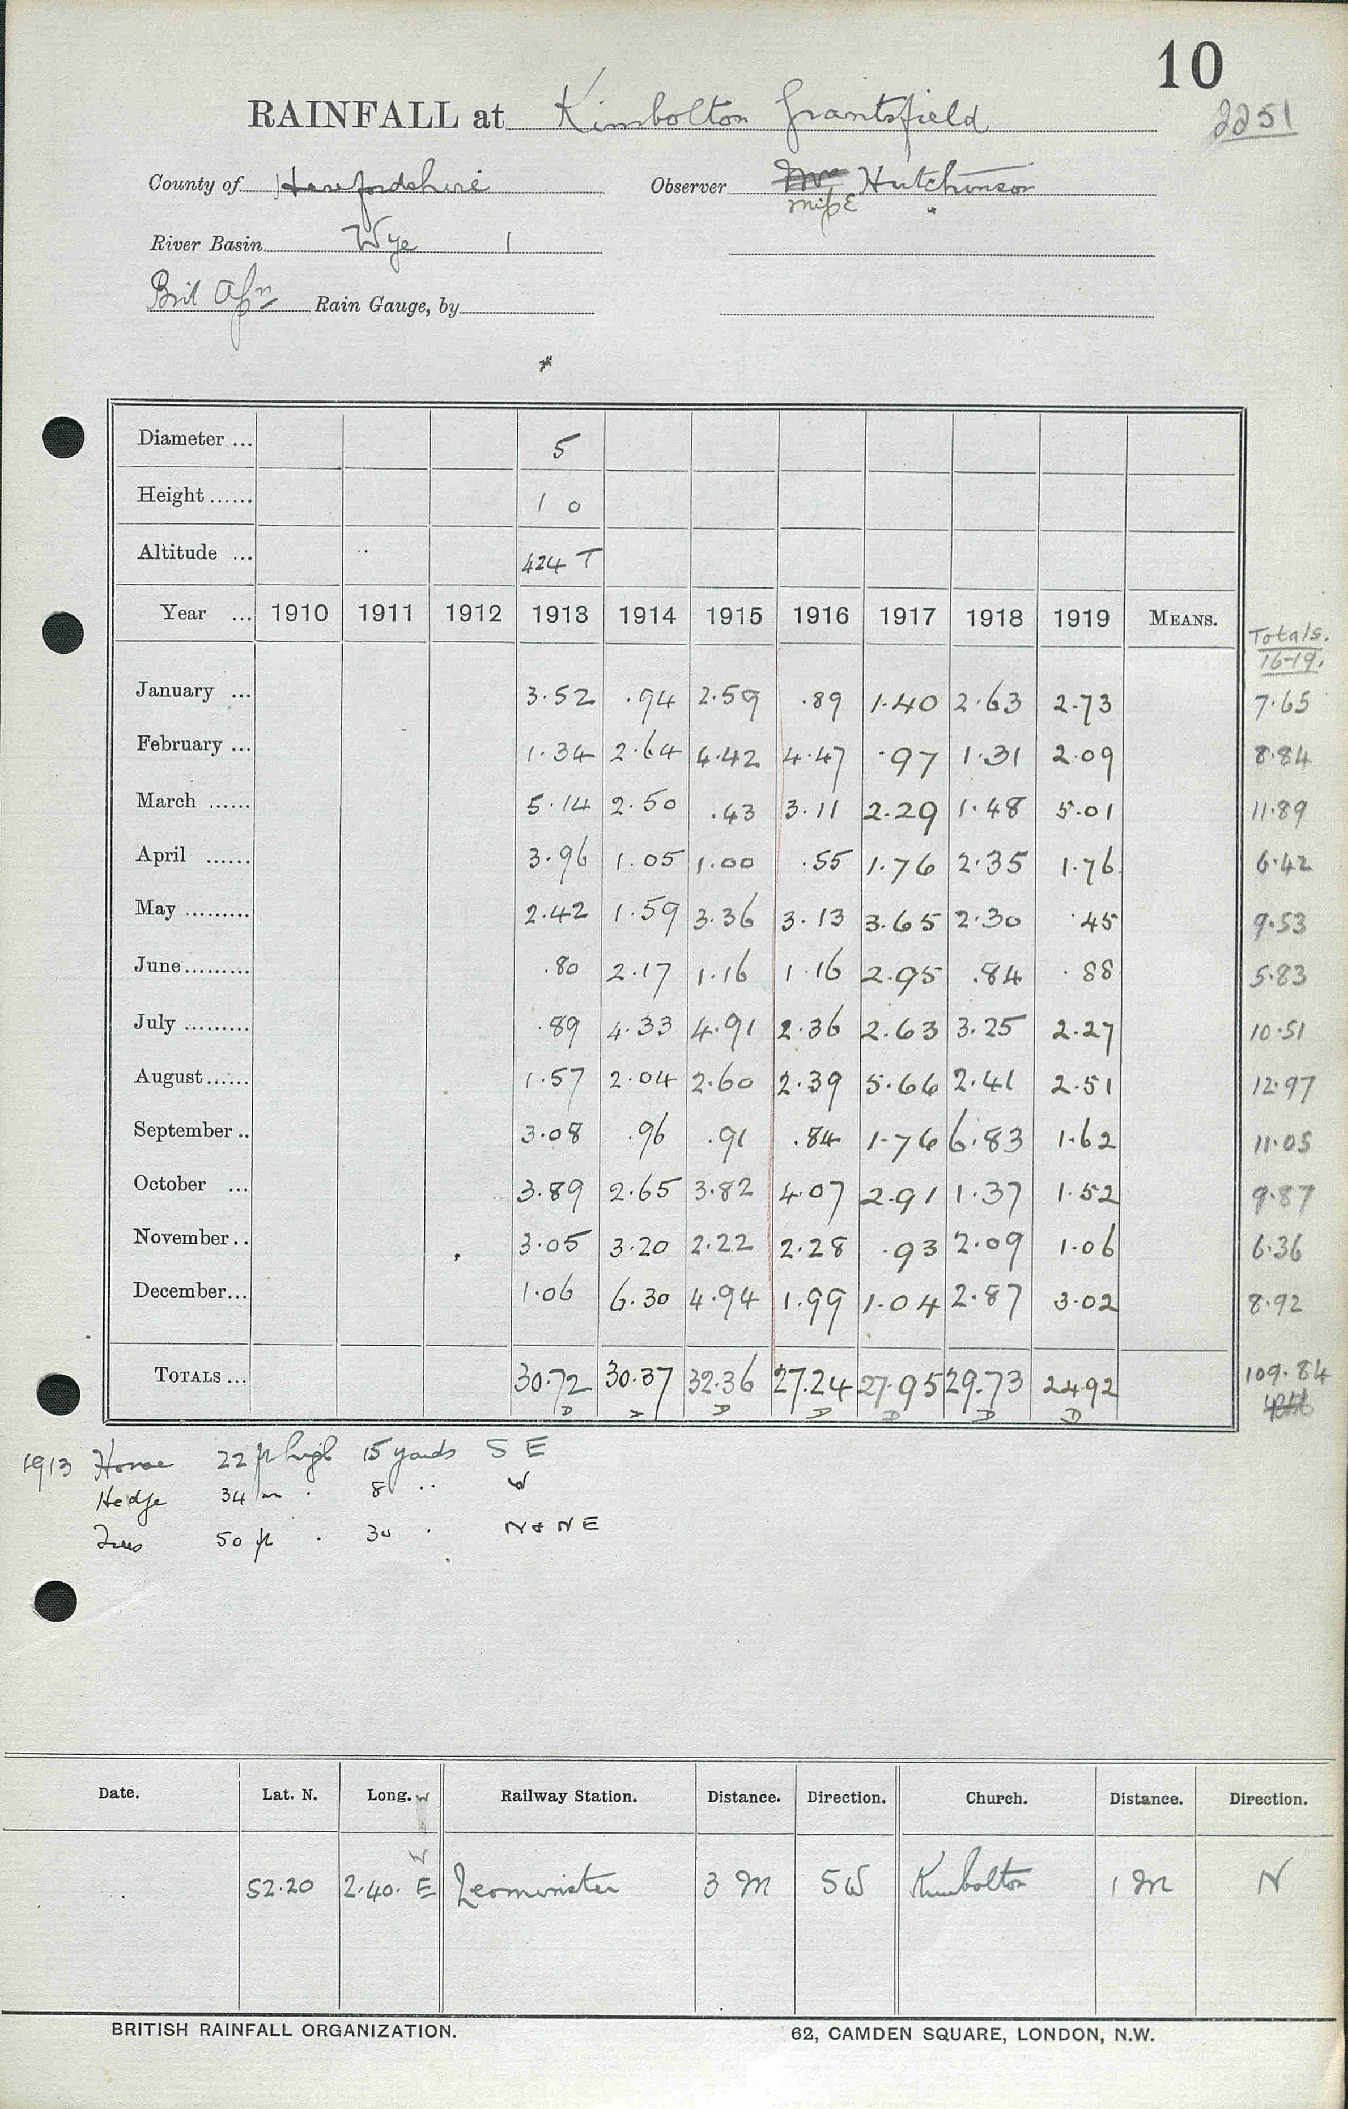 10
RAINFALL at Kimbolton Grantsfield 2251
County of Herefordshire Observer Mrs Hutchinson
Miss E
River Basin Wye 1
Brit Assn Rain Gauge, by
*
Diameter ... 5
Height ...... 1 0
Altitude ... 424 T
Year ... 1910 1911 1912 1913 1914 1915 1916 1917 1918 1919 MEANS. Totals. 16-19.
January ... 3.52 .94 2.59 .89 1.40 2.63 2.73 7.65
February ... 1.34 2.64 4.42 4.47 .97 1.31 2.09 8.84
March ...... 5.14 2.50 .43 3.11 2.29 1.48 5.01 11.89
April ...... 3.96 1.05 1.00 .55 1.76 2.35 1.76 6.42
May ......... 2.42 1.59 3.36 3.13 3.65 2.30 .45 9.53
June ......... .80 2.17 1.16 1.16 2.95 .84 .88 5.83
July ......... .89 4.33 4.91 2.36 2.63 3.25 2.27 10.51
August ...... 1.57 2.04 2.60 2.39 5.66 2.41 2.51 12.97
September .. 3.08 .96 .91 .84 1.76 6.83 1.62 11.05
October ... 3.89 2.65 3.82 4.07 2.91 1.37 1.52 9.87
November .. 3.05 3.20 2.22 2.28 .93 2.09 1.06 6.36
December ... 1.06 6.30 4.94 1.99 1.04 2.87 3.02 8.92
TOTALS ... 30.72 30.37 32.36 27.24 27.95 29.73 24.92 109.84
D D D D D D D
1913 House 22 ft high 15 yards S E
Hedge 34 in . 8 .. W
Trees 50 ft . 30 . N & N E
Date. Lat. N. Long. W Railway Station. Distance. Direction. Church. Distance. Direction.
W
52.20 2.40. E Leominster 3 M SW Kimbolton 1 M N
BRITISH RAINFALL ORGANIZATION. 62, CAMDEN SQUARE, LONDON, N.W.